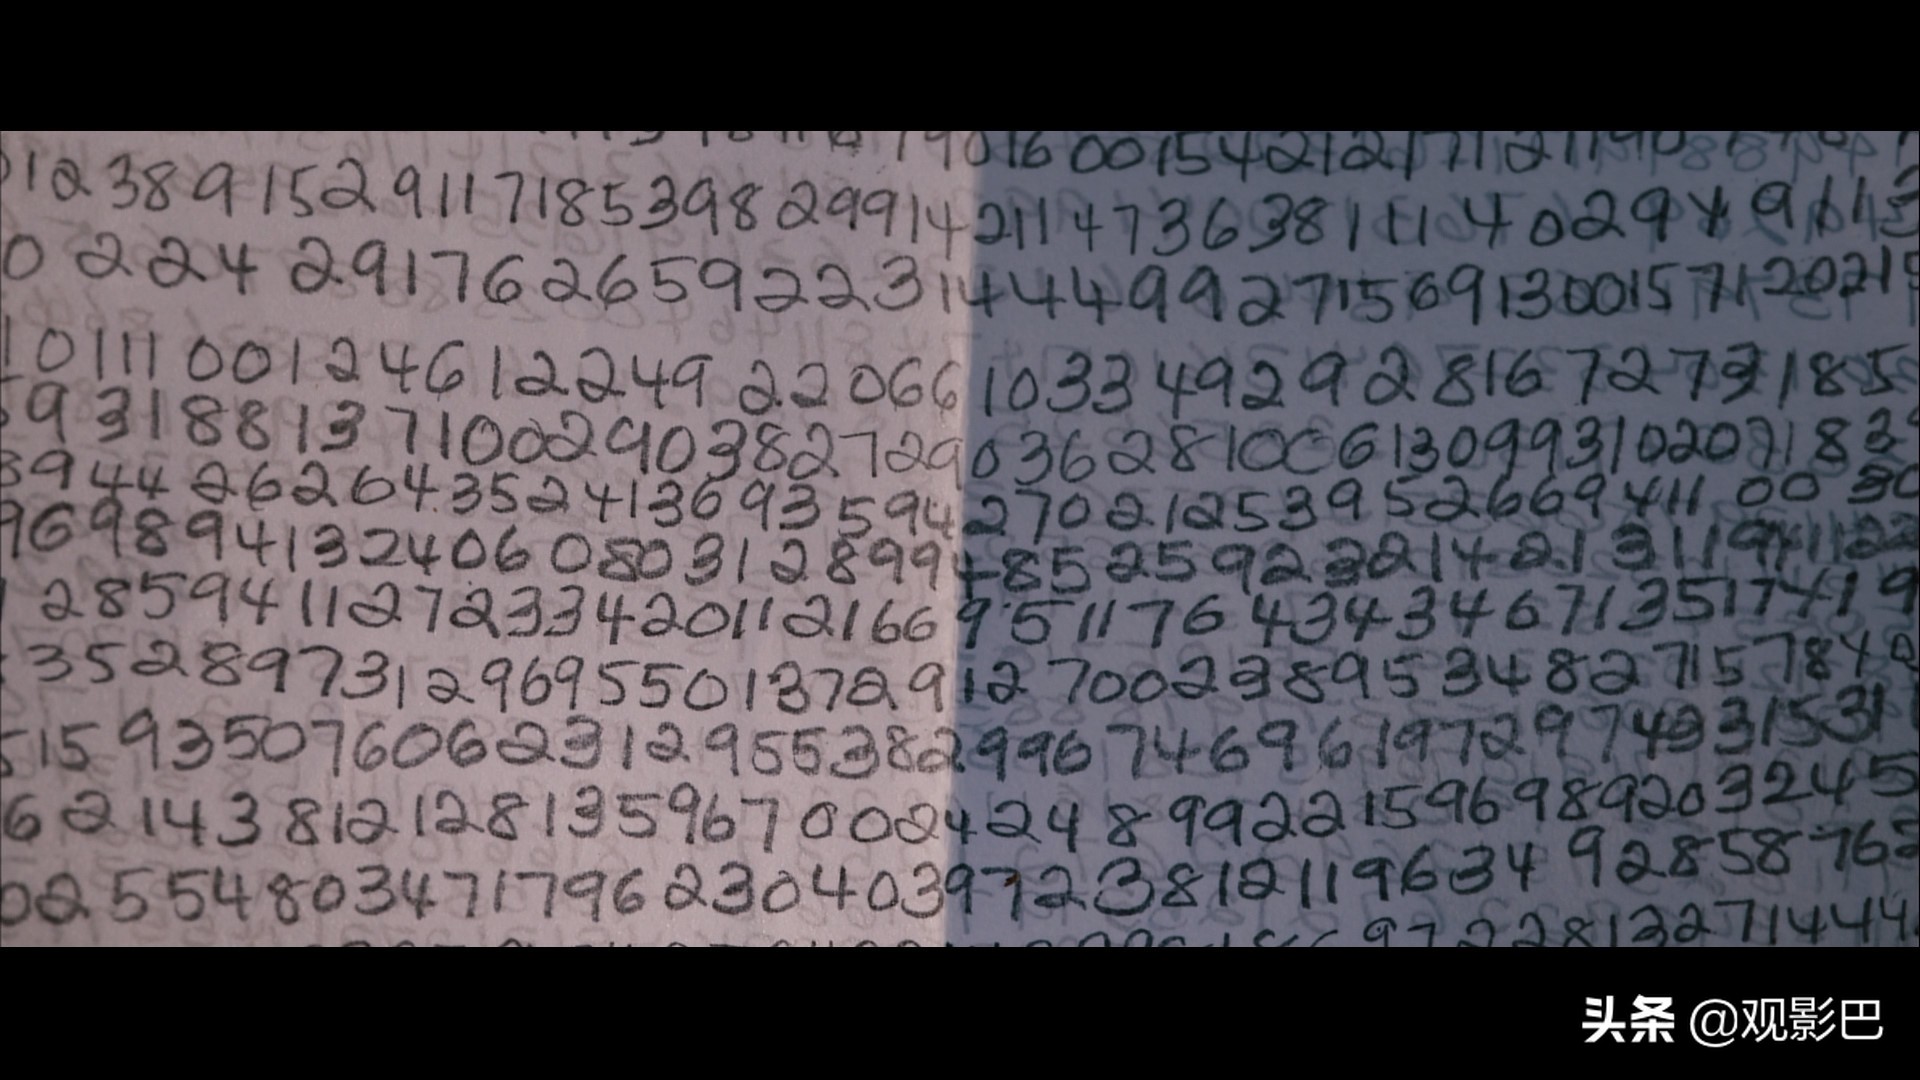 19016 0015421217121190
012 389 1529117185398 2991421147363811140294911 3
0 224 2917626592231444992715691300157120215
1 0111 001246 12249 22066 1033 4929 2816 7273185
593188137100290382729036281006130993102021832
3944 2626435241369359427021253952669411 00 30
969894132406 0803128994852592321421311941122
1 28594112723342011216695117643434671351741 9
3528973129695501372912 70023895348271578 40
515 93507606231295538299674696197297433 1531
62143 812128135967002424 89922159698920324 5
02554803471796230403972381211963492858762
97228132714444
头条 @观影巴